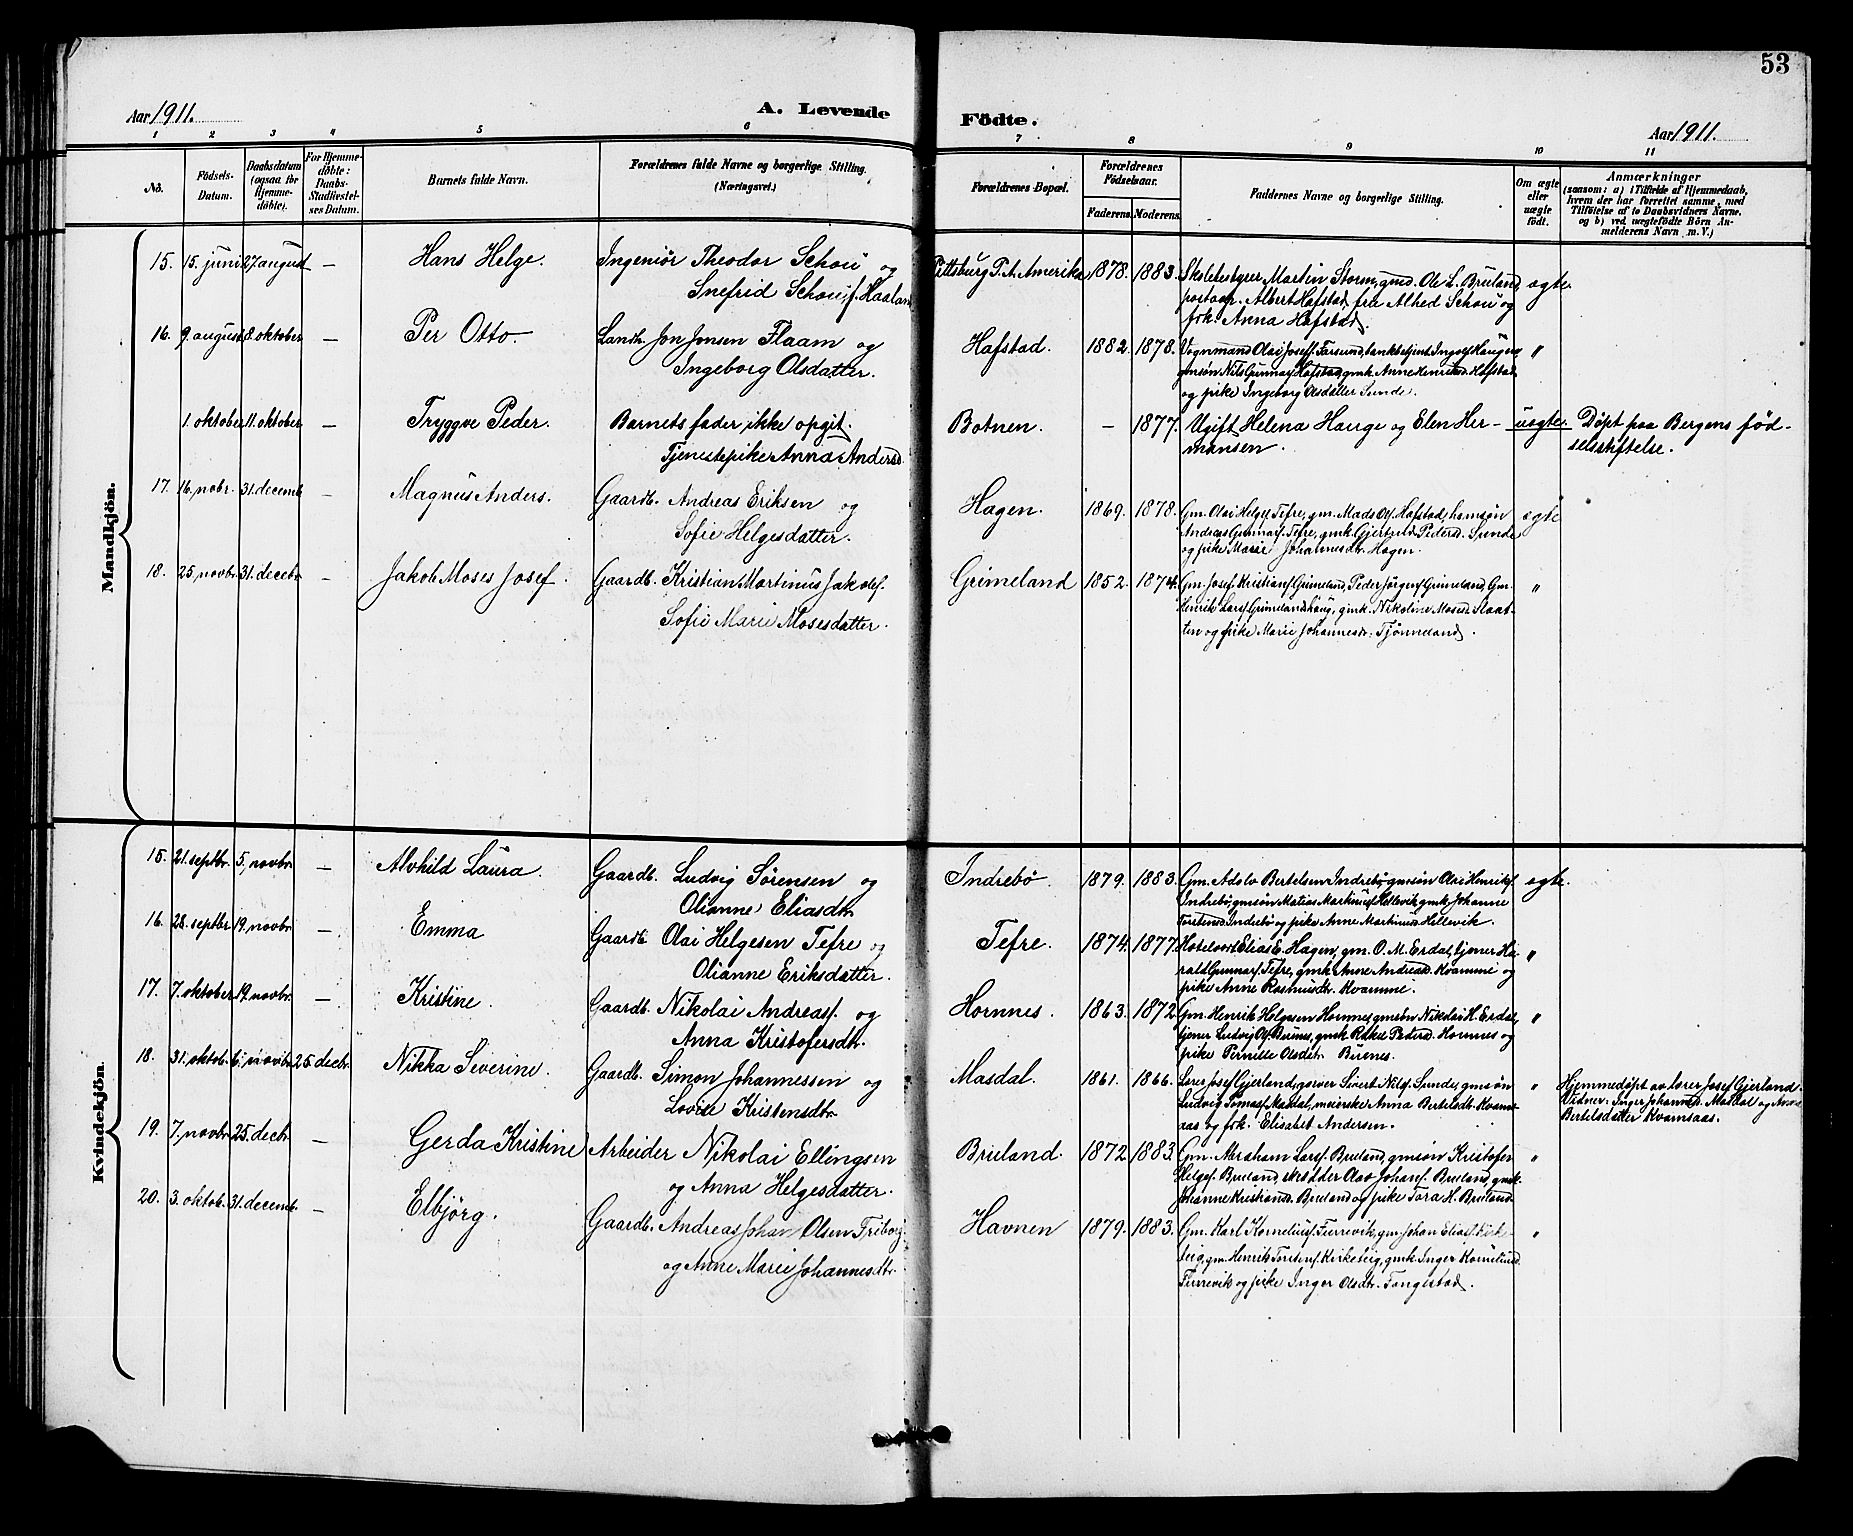 53
Aar 1911.
A. Levende
Födte.
Aar 1911.
1 2 3 4 5 6 7 8 9 10 11
No.
Födsels-Datum.
Daabsdatum (ogsaa for Hjemme-döbte).
For Hjemme-döbte: Daabs-Stadfæstel-ses Datum.
Barnets fulde Navn.
Forældrenes fulde Navne og borgerlige Stilling. (Næringsvei.)
Forældrenes Bopæl.
Forældrenes Födselsaar.
Faderens. Moderens.
Faddernes Navne og borgerlige Stilling.
Om ægte eller uægte födt.
Anmærkninger
(saasom: a) i Tilfælde af Hjemmedaab,
hvem der har forrettet samme, med
Tilföielse af to Daabsvidners Navne,
og b) ved uægtefödte Börn An-
melderens Navn m. V.)
Mandkjön.
15. 15. juni 27 august — Hans Helge. Ingeniör Theodor Schou og
Snefrid Schou, f. Haaland
Pittsburg P. A. Amerika 1878. 1883. Skolebestyrer Martin Storm, gmd. Ole L. Bruland,
postaap. Albert Hafstad, fru Alhed Schou og
frk. Anna Hafstad.
ægte.
16. 9. august 8. oktober — Per Otto. Landh. Jon Jonsen Flaam og
Ingeborg Olsdatter.
Hafstad. 1882. 1878. Vognmand Olai Josefs. Farsund, bankbetjent Ingolf Haugen,
gmsøn Nils Gunnars. Hafstad, gmk. Anne Henriksd. Hafstad
og pike Ingeborg Olsdatter Sunde.
"
1. oktober 11. oktober — Tryggve Peder. Barnets fader ikke opgit.
Tjenestepike Anna Andersd.
Botnen. — 1877. Ugift Helena Hauge og Elen Her-
mansen.
uægte. Døpt paa Bergens fød-
selsstiftelse.
17. 16. nobr. 31. decemb — Magnus Anders. Gaardb. Andreas Eriksen og
Sofie Helgesdatter.
Hagen. 1869. 1878. Gm. Olai Helges. Tefre, gm. Mads Ols. Hafstad, hansøn
Andreas Gunnars. Tefre, gmk. Gjertrud Pedersd. Sunde,
og pike Marie Johannesdtr. Hagen.
ægte
18. 25. novbr. 31. decebr. — Jakob Moses Josef. Gaardb. Kristian Martinus Jakobs.
Sofie Marie Mosesdatter.
Grimeland 1852. 1874. Gm. Josef Kristians. Grimeland, Peder Jørgens. Grimeland, Gm.
Henrik Lars. Grimelandshaug, gmk. Nikoline Mosesd. Slaat-
ten og pike Marie Johannesdr. Tjønneland.
"
Kvindekjön.
15. 21. septbr. 5. novbr. — Alvhild Laura. Gaardb. Ludvig Sørensen og
Olianne Eliasdtr.
Indrebö. 1879. 1883. Gm. Adolv Bertelsen Indrebø, gmsøn Olai Henriks.
Indrebø, gmsøn Matias Martinus. Hellevik, gmk. Johanne
Torstensd. Indrebø og pike Anne Martinusd. Hellevik.
ægte.
16. 28. septbr. 19. novbr. — Emma Gaardb. Olai Helgesen Tefre og
Olianne Eriksdatter.
Tefre. 1874. 1877. Hotelvert Elias E. Hagen, gm. O. M. Erdal, tjener Ha-
rald Gunnars. Tefre, gmk. Anne Andreasd. Kvamme og
pike Anne Rasmusdtr. Kvamme.
"
17. 7. oktober 19. novbr. — Kristine. Gaardb. Nikolai Andreass. og
Anna Kristofersdtr.
Hornnes. 1863. 1872 Gm. Henrik Helgesen Hornnes, gmsøn Nikolai H. Erdal,
tjener Ludvig Ols. Brunes, gmk. Rakel Pedersd. Hornnes og
pike Pernille Olsdtr. Brunes.
"
18. 31. oktob. 6. novbr. 25. decbr. Nikka Severine. Gaardb. Simon Johannessen og
Lovise Kristensdtr.
Masdal. 1861. 1866. Lærer Josef Gjerland, garver Sivert Nils. Sunde, gmsøn
Ludvig Tomass. Masdal, meierske Anna Bertelsdtr. Kvams-
aas og frk. Elisabet Andersen.
" Hjemmedøpt av lærer Josef Gjerland.
Vidner: Inger Johannesd. Masdal og Anna
Bertelsdatter Kvamsaas.
19. 7. novbr. 25. decbr. — Gerda Kristine Arbeider Nikolai Ellingsen
og Anna Helgesdatter.
Bruland. 1872 1883. Gm. Abraham Lars. Bruland, gmsøn Kristofer
Helges. Bruland, skrædder Olav Johans. Bruland, gmk.
Johanne Kristiansd. Bruland og pike Tora H. Bruland.
"
20. 3. oktob. 31. decemb. — Elbjörg. Gaardb. Andreas Johan Olsen Friborg
og Anne Marie Johannesdtr.
Havnen 1879. 1883. Gm. Karl Kornelius. Furevik, gm. Johan Elias. Kirke-
teig, gm. Henrik Torstens. Kirketeig, gmk. Inger Korneliusd.
Furevik og pike Inger Olsdtr. Fangestad.
"